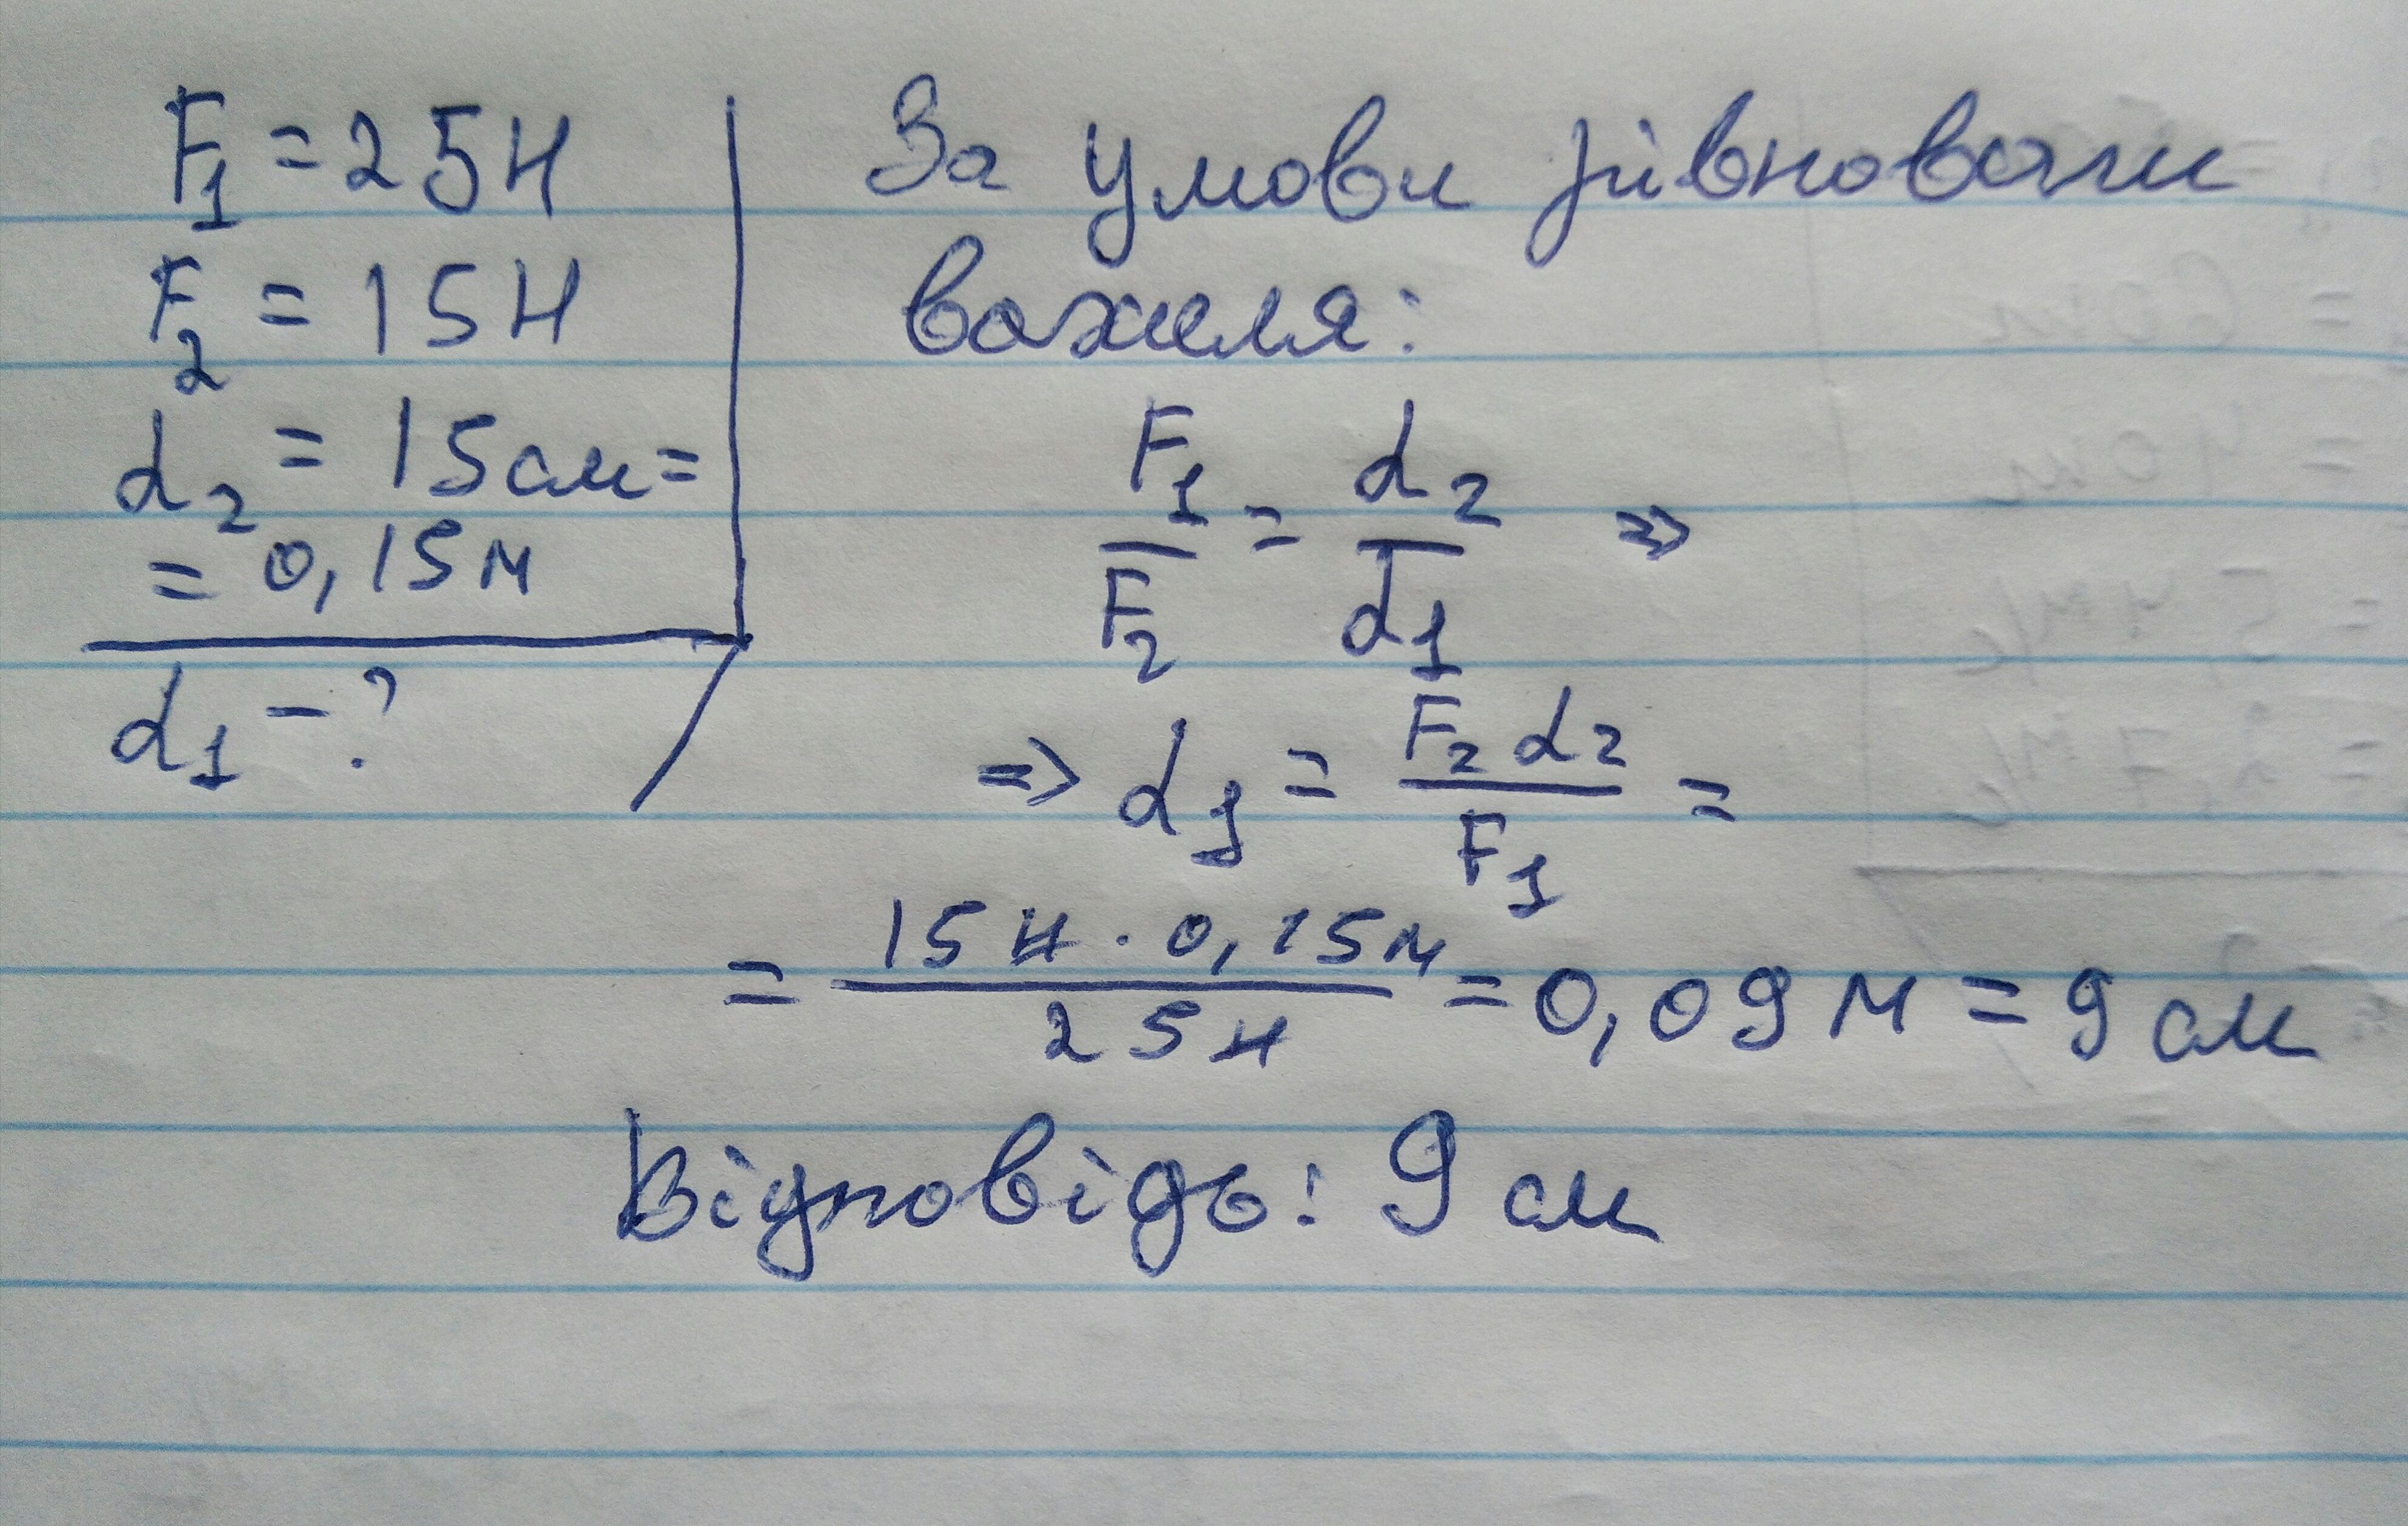 F₁ = 25Н
F₂ = 15Н
d₂ = 15см =
= 0,15м
d₁ - ?
За умови рівноваги
важеля:
F₁/F₂ = d₂/d₁ ⇒
⇒ d₁ = F₂ d₂/F₁ =
= 15Н · 0,15м/25Н = 0,09м = 9см
Відповідь: 9см